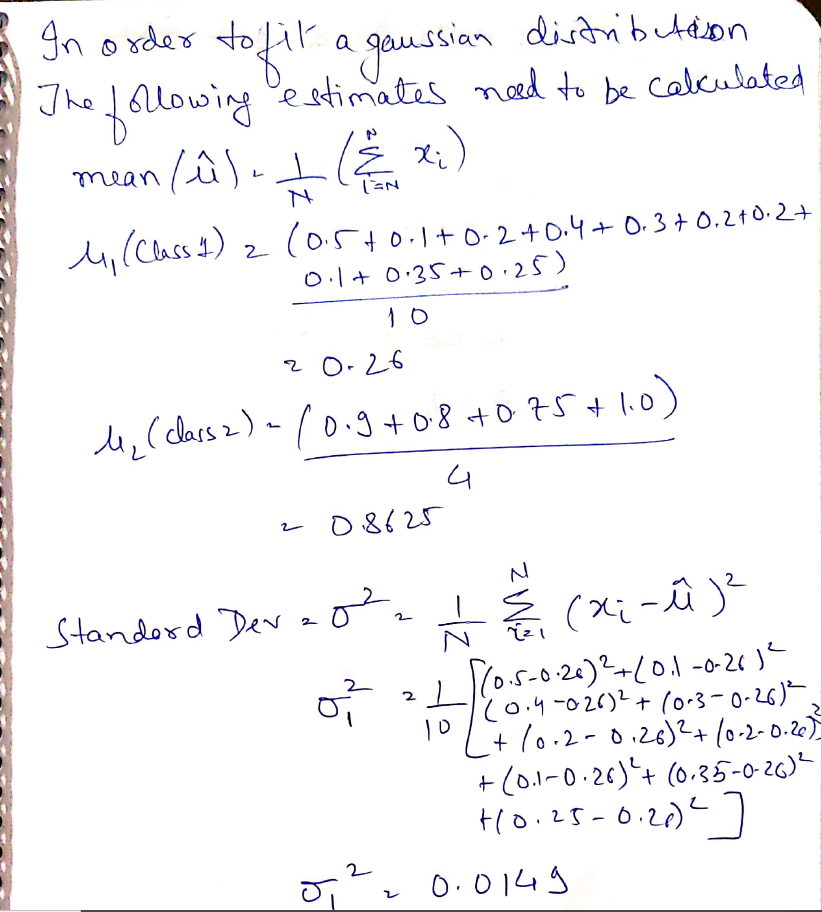 In order to fit a gaussian distribution
The following estimates need to be calculated
mean (û) = 1/N ( N Σ i=N xi )
μ1 (Class 1) = (0.5 + 0.1 + 0.2 + 0.4 + 0.3 + 0.2 + 0.2 +
0.1 + 0.35 + 0.25)
10
= 0.26
μ2 (class 2) = (0.9 + 0.8 + 0.75 + 1.0)
4
= 0.8625
Standard Dev = σ² = 1/N N Σ i=1 (xi - û)²
σ1² = 1/10 [(0.5-0.26)² + (0.1-0.26)²
(0.4-0.26)² + (0.3-0.26)²
+ (0.2-0.26)² + (0.2-0.26)²
+ (0.1-0.26)² + (0.35-0.26)²
+ (0.25-0.26)² ]
σ1² = 0.0149